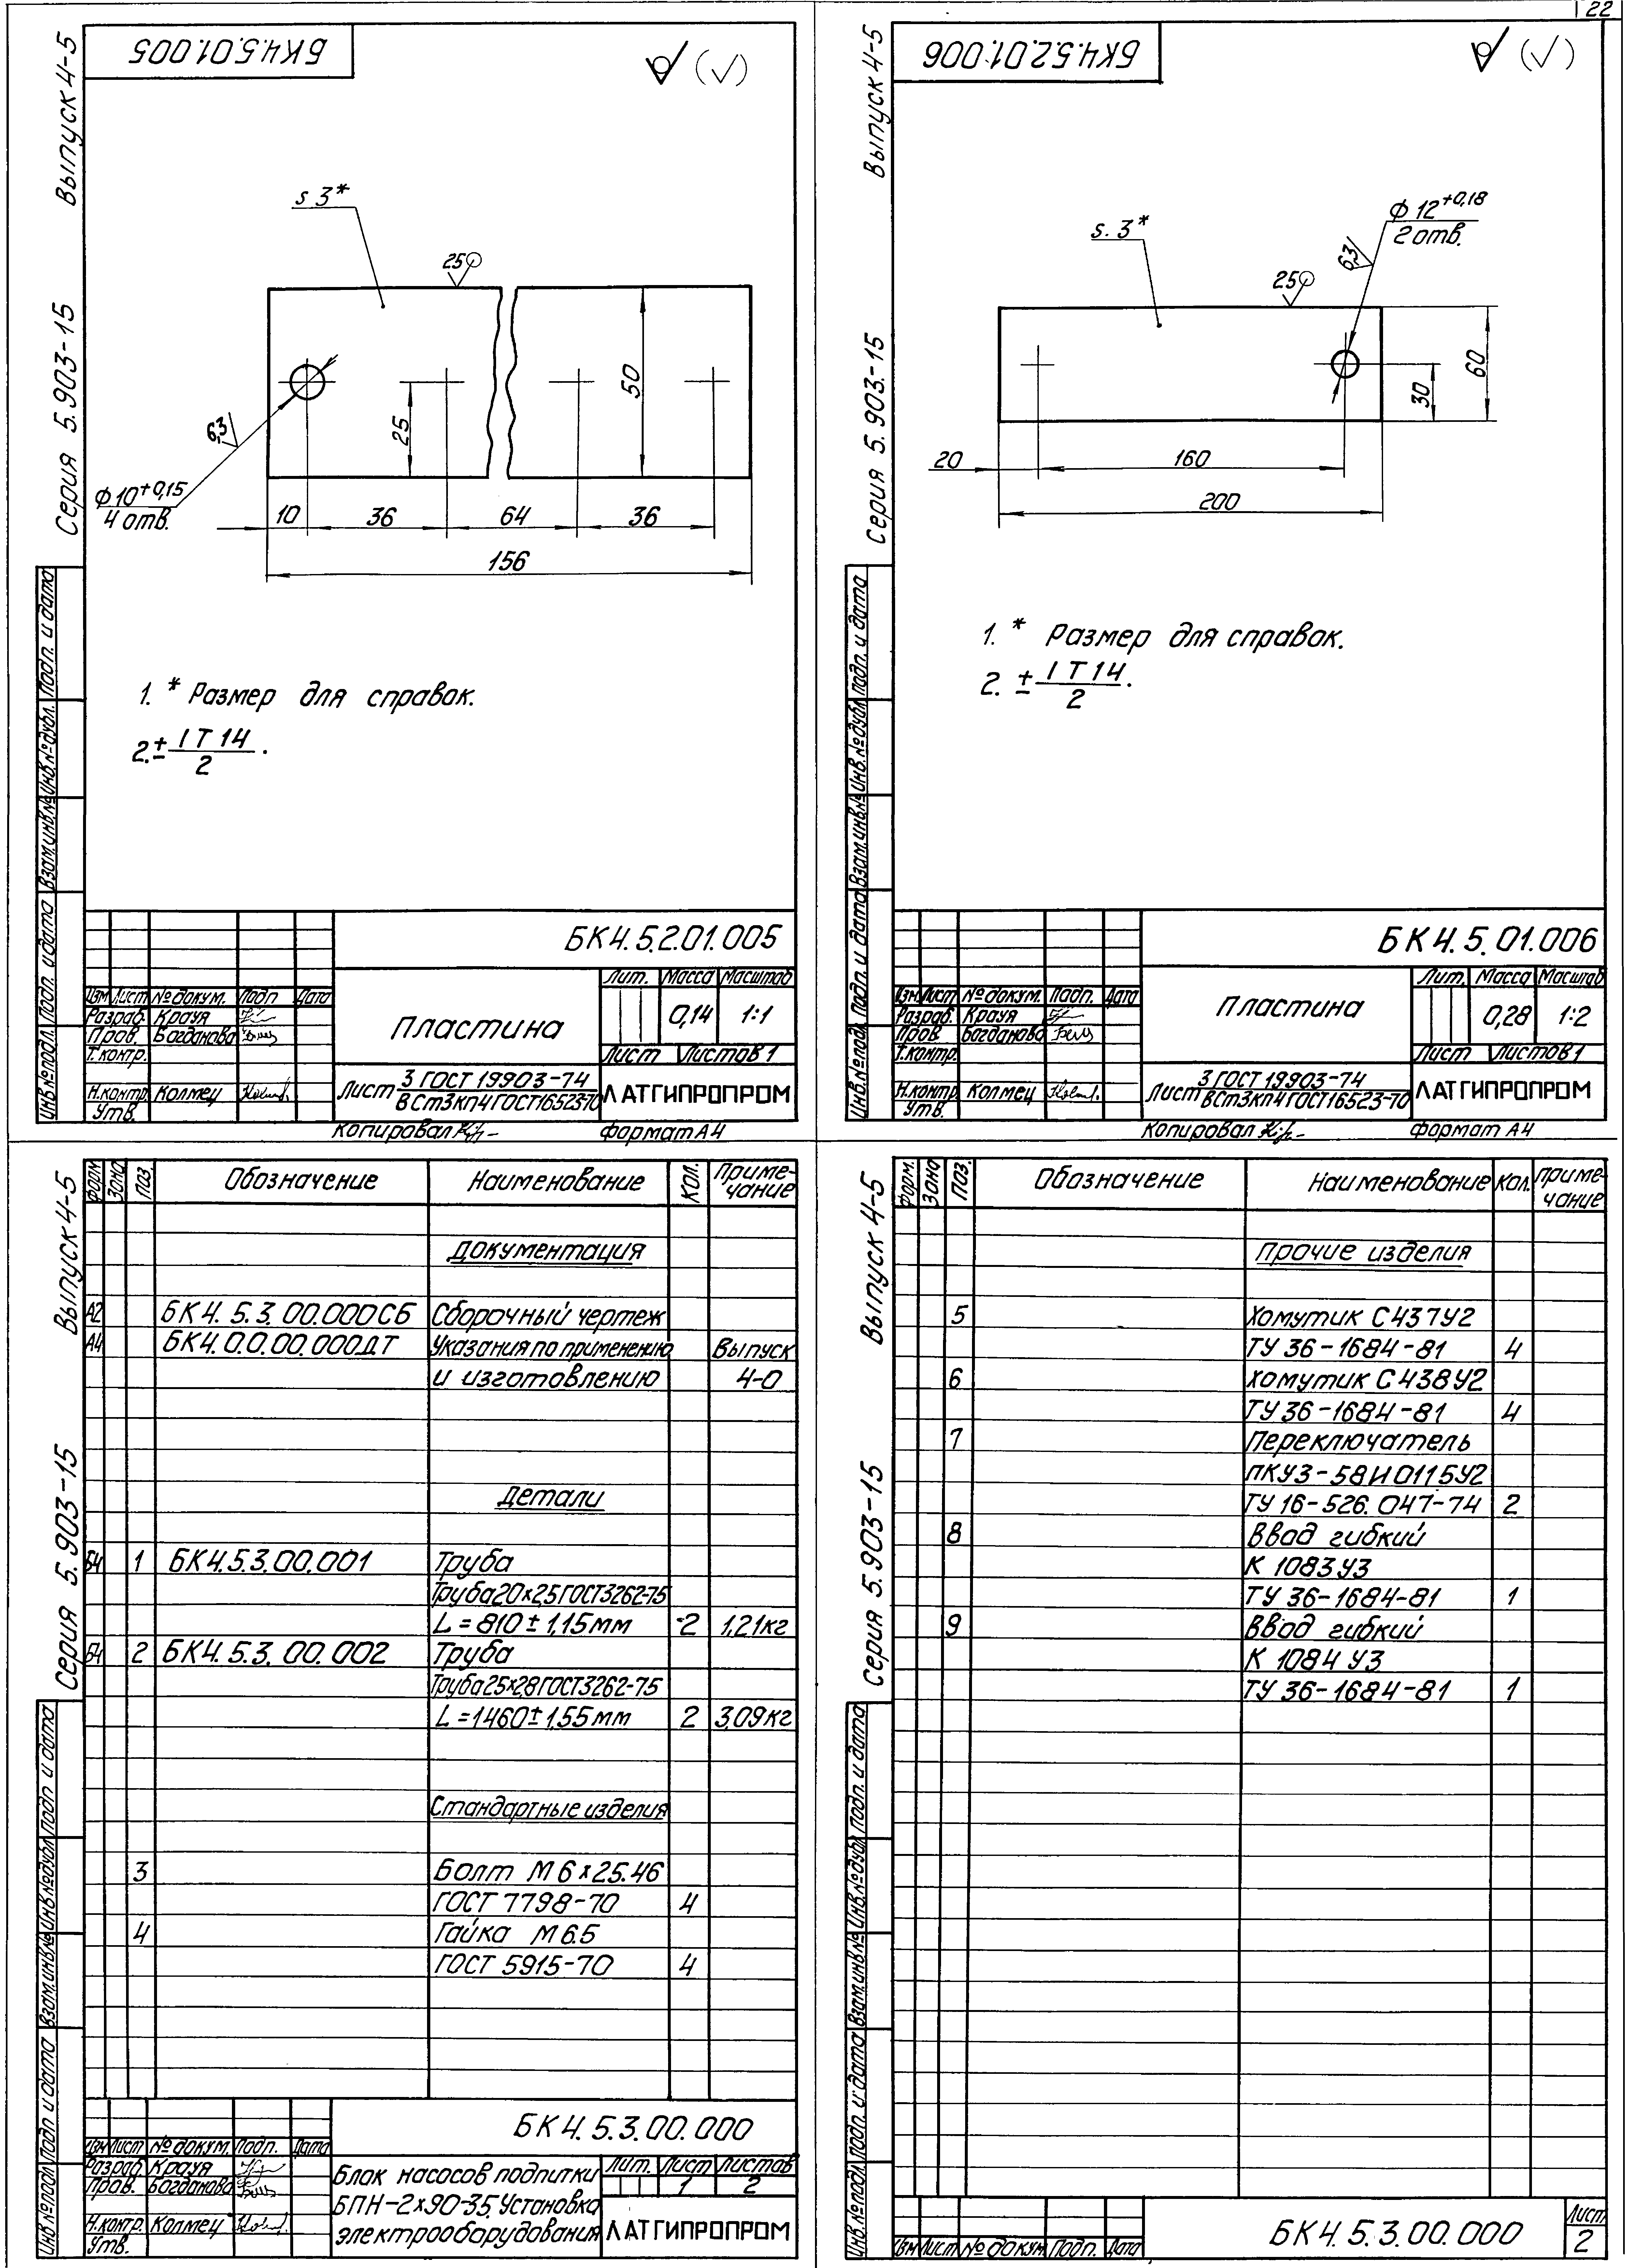 22
БК4.5.01.005
Выпуск 4-5
Серия 5.903-15
(√)
s 3*
25
50
25
6,3
ф10+0,15
4 отв.
10 36 64 36
156
1. * Размер для справок.
2. ± IT14
2
Подп. и дата
Инв.№дубл.
Взам.инв.№
Подп. и дата
Инв.№подл.
БК4.5.2.01.005
Лит. Масса Масштаб
Изм Лист № докум. Подп Дата
Разраб. Крауя
Пров. Богданова
Т.контр.
Н.контр. Колмец
Утв.
Пластина
0,14 1:1
Лист Листов 1
Лист 3 ГОСТ 19903-74
ВСт3кп4 ГОСТ16523-70
ЛАТГИПРОПРОМ
Копировал
Формат А4
БК4.5.2.01.006
Выпуск 4-5
Серия 5.903-15
(√)
ф12+0,18
2 отв.
6,3
s. 3*
25
60
30
20 160
200
1. * Размер для справок.
2. ± IT14
2
Подп. и дата
Инв.№дубл
Взам.инв.№
Подп. и дата
Инв.№подл.
БК4.5.01.006
Лит. Масса Масштаб
Изм Лист № докум. Подп. Дата
Разраб. Крауя
Пров. Богданова
Т.контр.
Н.контр. Колмец
Утв.
Пластина
0,28 1:2
Лист Листов 1
Лист 3 ГОСТ 19903-74
ВСт3кп4 ГОСТ16523-70
ЛАТГИПРОПРОМ
Копировал
Формат А4
Выпуск 4-5
Серия 5.903-15
Форм Зона Поз. Обозначение Наименование Кол. Примечание
Документация
А2 БК4.5.3.00.000СБ Сборочный чертеж
А4 БК4.0.0.00.000ДТ Указания по применению Выпуск
и изготовлению 4-0
Детали
Б4 1 БК4.5.3.00.001 Труба
Труба20х2,5ГОСТ3262-75
L = 810 ± 1,15мм 2 1,21кг
Б4 2 БК4.5.3.00.002 Труба
Труба25х2,8ГОСТ3262-75
L = 1460 ± 1,55мм 2 3,09кг
Стандартные изделия
3 Болт М6х25.46
ГОСТ 7798-70 4
4 Гайка М6.5
ГОСТ 5915-70 4
Подп и дата
Инв.№дубл
Взам.инв.№
Подп и дата
Инв.№подл
БК4.5.3.00.000
Изм Лист № докум. Подп. Дата
Разраб. Крауя
Пров. Богданова
Н.контр. Колмец
Утв.
Блок насосов подпитки
БПН-2х90-35. Установка
электрооборудования
Лит. Лист Листов
1 2
ЛАТГИПРОПРОМ
Выпуск 4-5
Серия 5.903-15
Форм. Зона Поз. Обозначение Наименование Кол. Примечание
Прочие изделия
5 Хомутик С437У2
ТУ 36-1684-81 4
6 Хомутик С438У2
ТУ 36-1684-81 4
7 Переключатель
ПКУ3-58И0115У2
ТУ 16-526.047-74 2
8 Ввод гибкий
К 1083У3
ТУ 36-1684-81 1
9 Ввод гибкий
К 1084У3
ТУ 36-1684-81 1
Подп. и дата
Инв.№дубл
Взам.инв№
Подп. и дата
Инв.№подл
Изм Лист № докум Подп. Дата
БК4.5.3.00.000
Лист
2